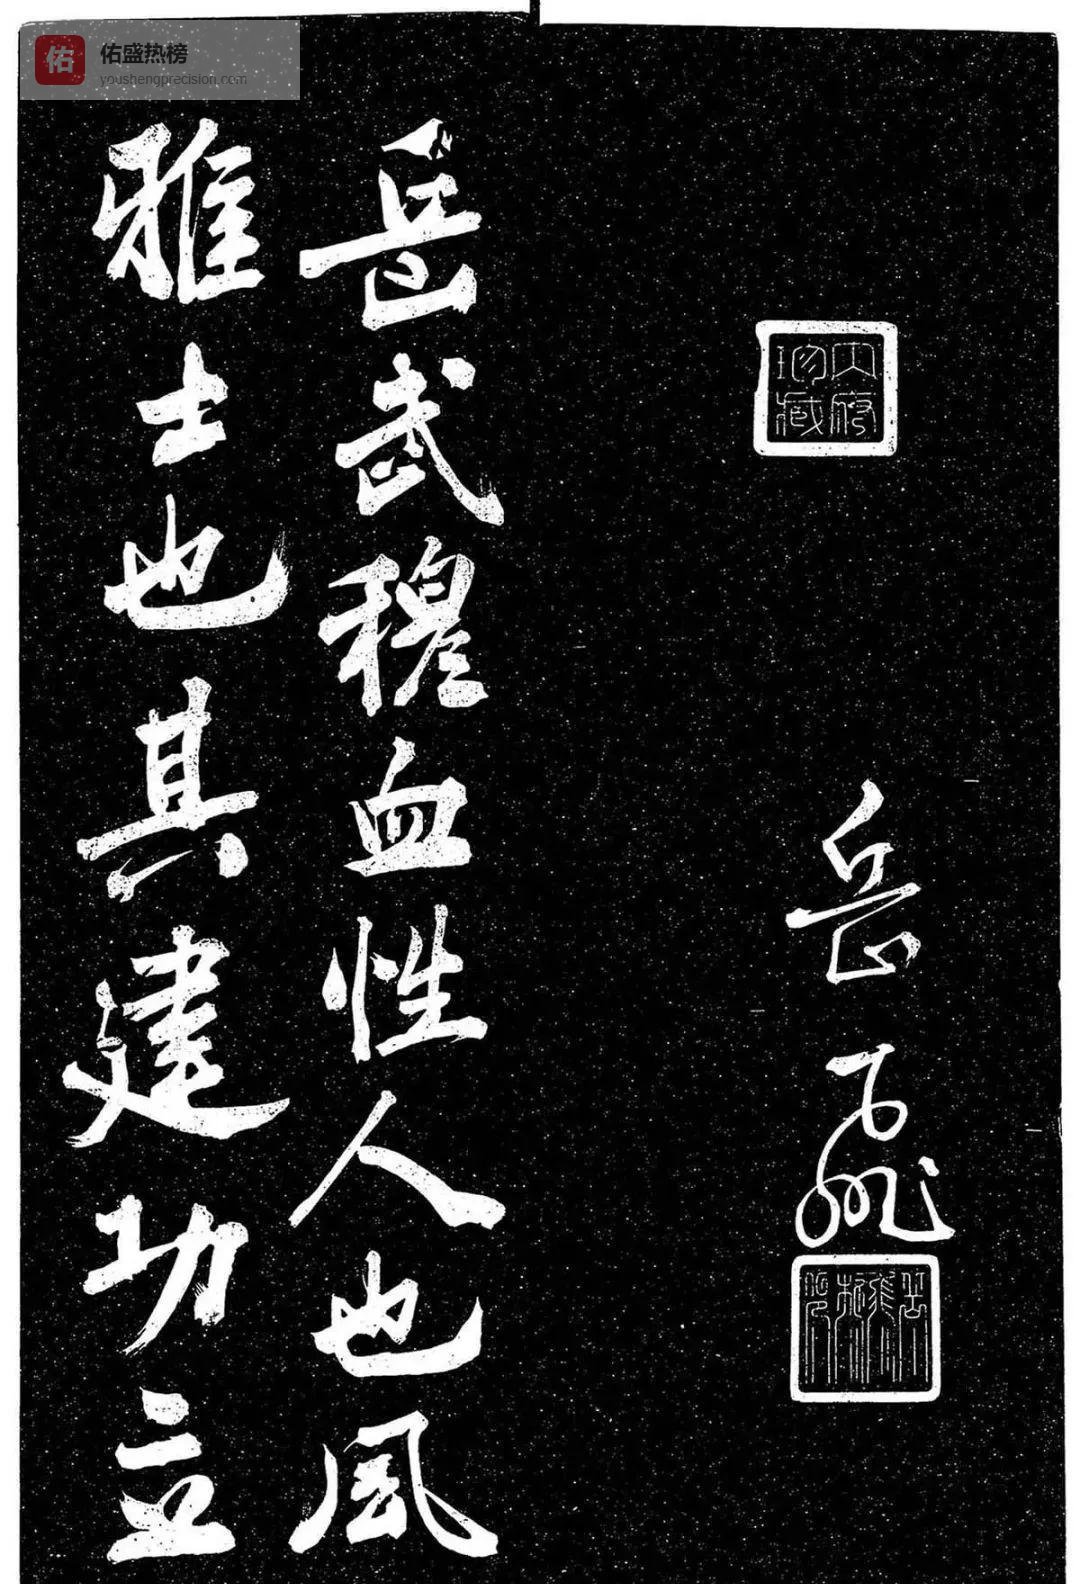 佑盛热榜
youshengprecision.com
内府
珍藏
岳飞
岳武穆血性人也风
雅士也其建功立